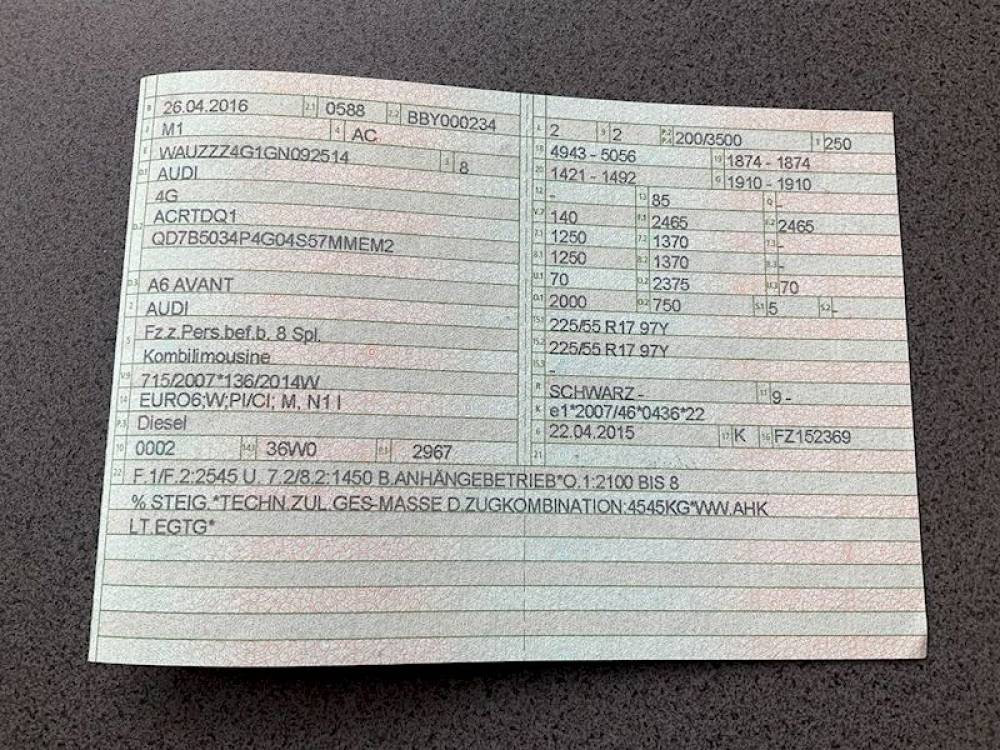 B 26.04.2016 2.1 0588 2.2 BBY000234
J M1 4 AC
E WAUZZZ4G1GN092514 3 8
D.1 AUDI
4G
D.2 ACRTDQ1
QD7B5034P4G04S57MMEM2
D.3 A6 AVANT
2 AUDI
5 Fz.z.Pers.bef.b. 8 Spl.
Kombilimousine
V.9 715/2007*136/2014W
14 EURO6;W;PI/CI; M, N1 I
P.3 Diesel
10 0002 14.1 36W0 P.1 2967
L 2 9 2 P.2 P.4 200/3500 T 250
18 4943 - 5056 19 1874 - 1874
20 1421 - 1492 G 1910 - 1910
12 - 13 85 Q -
V.7 140 F.1 2465 F.2 2465
7.1 1250 7.2 1370 7.3 -
8.1 1250 8.2 1370 8.3 -
U.1 70 U.2 2375 U.3 70
O.1 2000 O.2 750 S.1 5 S.2 -
15.1 225/55 R17 97Y
15.2 225/55 R17 97Y
15.3 -
R SCHWARZ - 11 9 -
K e1*2007/46*0436*22
6 22.04.2015 17 K 16 FZ152369
21
22 F.1/F.2:2545 U. 7.2/8.2:1450 B.ANHÄNGEBETRIEB*O.1:2100 BIS 8
% STEIG.*TECHN.ZUL.GES-MASSE D.ZUGKOMBINATION:4545KG*WW.AHK
LT.EGTG*